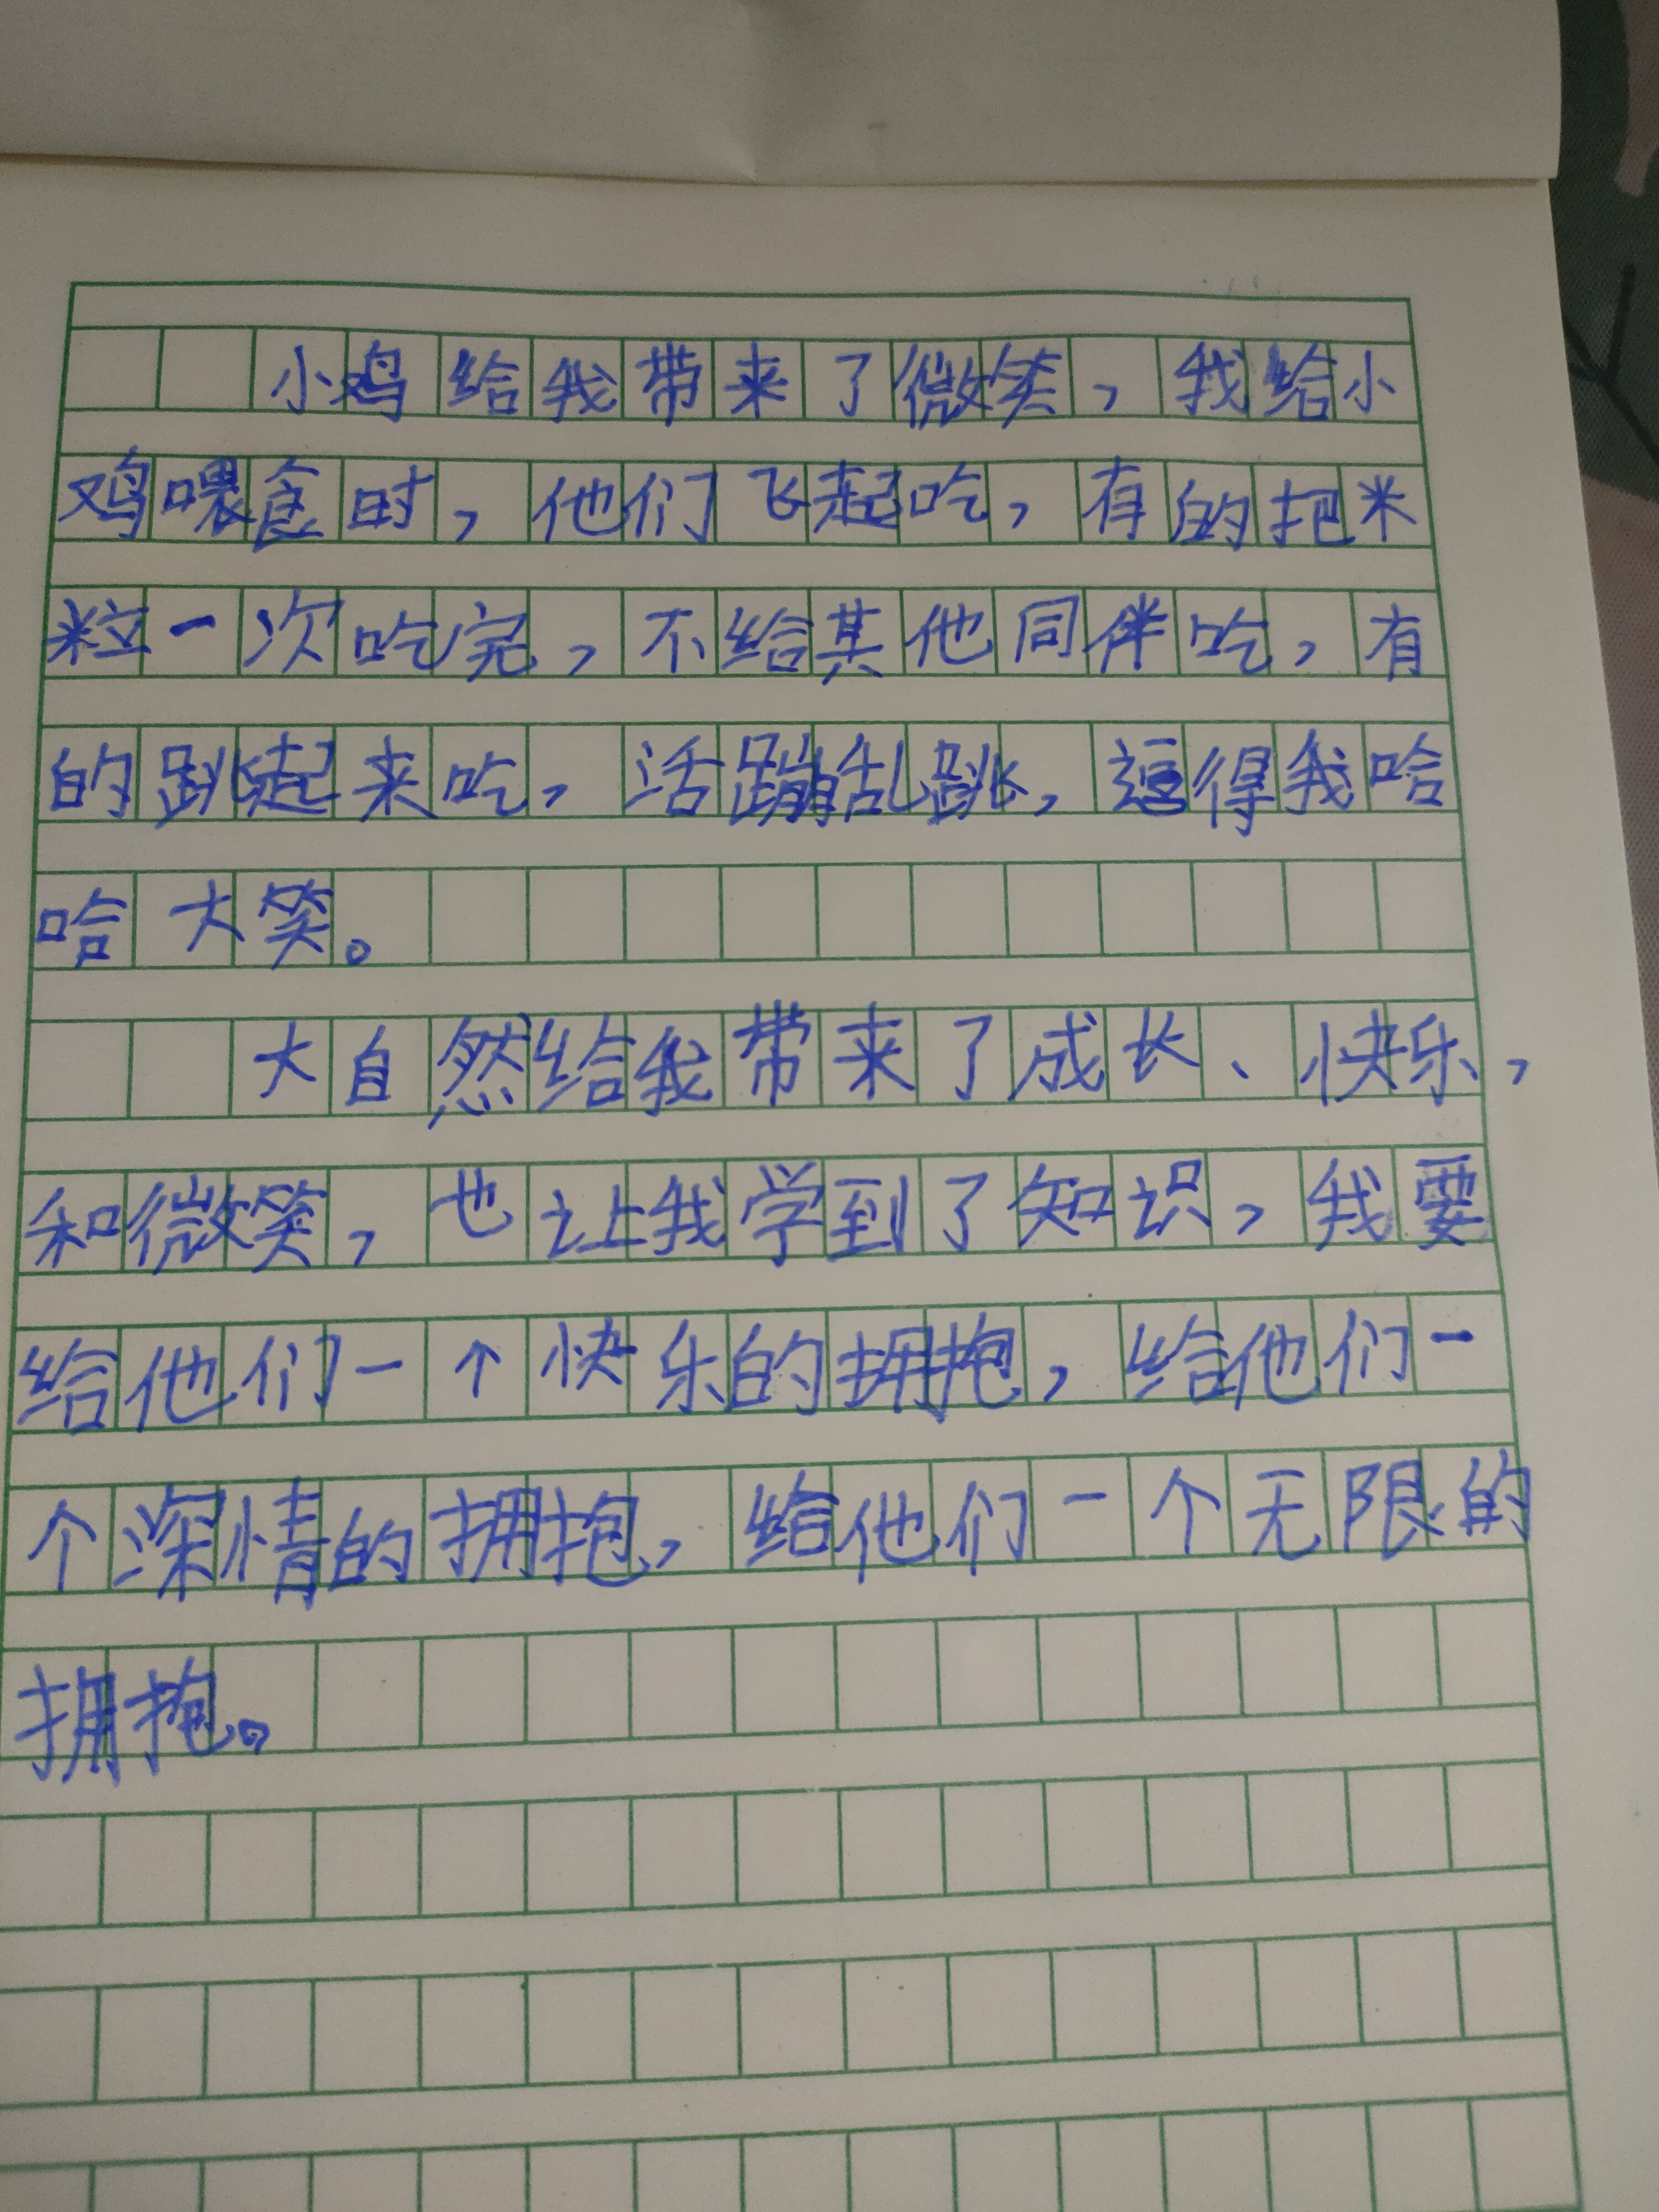 小鸡给我带来了微笑，我给小
鸡喂食时，他们飞起吃，有的把米
粒一次吃完，不给其他同伴吃，有
的跳起来吃，活蹦乱跳，逗得我哈
哈大笑。
大自然给我带来了成长、快乐，
和微笑，也让我学到了知识，我要
给他们一个快乐的拥抱，给他们一
个深情的拥抱，给他们一个无限的
拥抱。